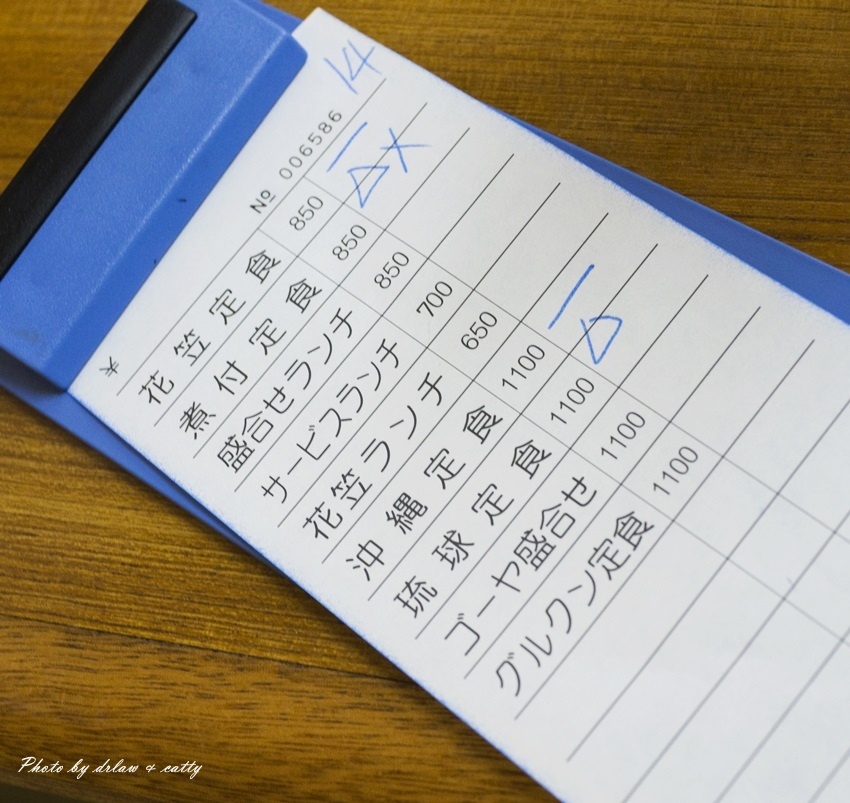 14
№ 006586
花笠定食 850 一
煮付定食 850 △ X
盛合せランチ 850
サービスランチ 700
花笠ランチ 650
沖縄定食 1100 一
琉球定食 1100 △
ゴーヤ盛合せ 1100
グルクン定食 1100
Photo by drlaw & catty